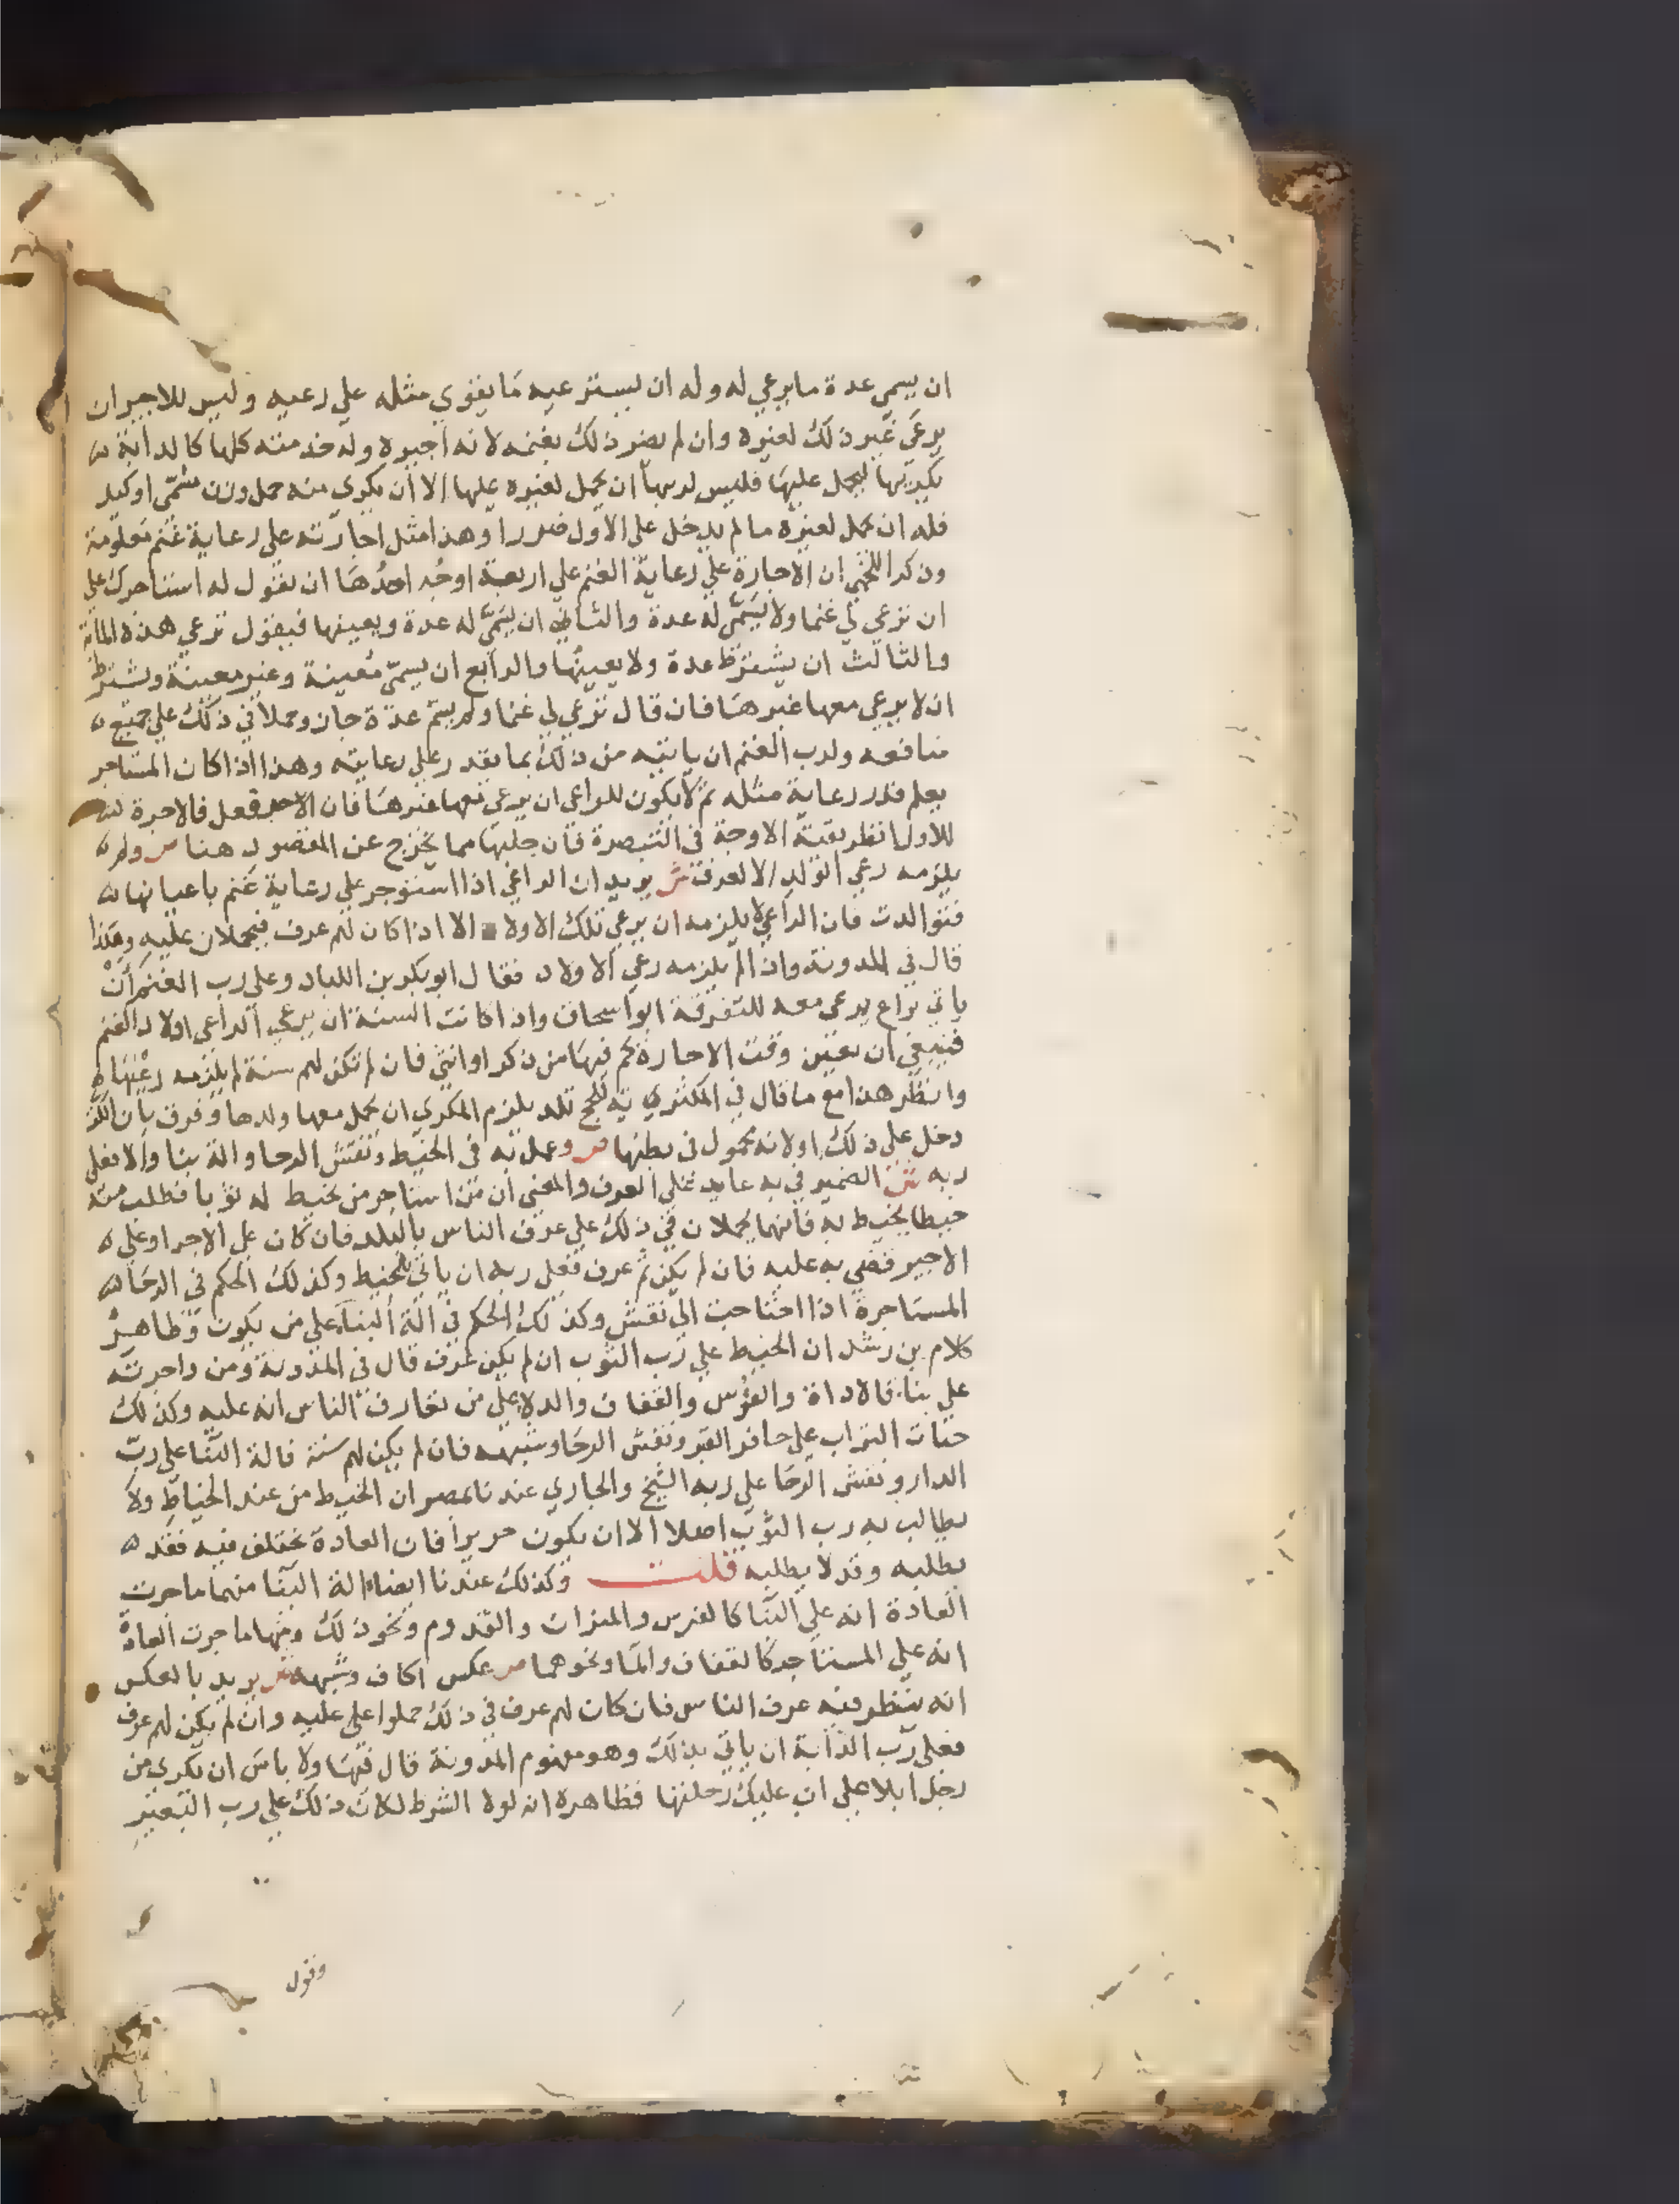 ان يسمي عدة ما يرعي له وله ان يسترعيه ما يقوي مثله علي رعيه وليس للاجير ان
يرعي غير ذلك لغيره وان لم يضر ذلك بغنمه لانه اجيره وله خدمته كلها كالدابة
يكريها ليحمل عليها فليس لربها ان يحمل لغيره عليها الا ان يكري منه حمل وزن مسمي او كيل
فله ان يحمل لغيره ما لم يدخل علي الاول ضررا وهذا مثل اجارته علي رعاية غنم معلومة
وذكر اللخمي ان الاجارة علي رعاية الغنم علي اربعة اوجه احدها ان يقول له استاجرك علي
ان ترعي لي غنما ولا يسمي له عدة والثاني ان يسمي له عدة ويعينها فيقول ترعي هذه الماية
والثالث ان يشترط عدة ولا يعينها والرابع ان يسمي معينة وغير معينة ويشترط
ان لا يرعي معها غيرها فان قال ترعي لي غنما ولم يسم عدة جاز وحملا في ذلك علي جميع
منافعه ولرب الغنم ان ياتيه من ذلك بما يقدر علي رعايته وهذا اذا كان المستاجر
يعلم قدر رعاية مثله ثم لا يكون للراعي ان يرعي معها غيرها فان الاجير فعل فالاجرة
للاول انظر بقية الاوجه في التبصرة فان جلبها مما يخرج عن المقصود هنا ص ولم
يلزمه رعي الولد الا لعرف ش يريد ان الراعي اذا استؤجر علي رعاية غنم باعيانها
فتوالدت فان الراعي لا يلزمه ان يرعي تلك الاولاد الا اذا كان لهم عرف فيحملان عليه وهكذا
قال في المدونة واذا لم يلزمه رعي الاولاد فقال ابو بكر بن اللباد وعلي رب الغنم ان
ياتي براع يرعي معه للتفرقة ابو اسحاق واذا كانت السنة ان يرعي الراعي اولاد الغنم
فينبغي ان يعين وقت الاجارة كم فيها من ذكر او انثي فان لم تكن لهم سنة لم يلزمه رعيها
وانظر هذا مع ما قال في المكتري تلد يلزم المكري ان يحمل معها ولدها وفرق بان
دخل علي ذلك اولانه محمول في بطنها ص وعمل به في الخيط ونقش الرحا والة بنا والا فعلي
ربه ش الضمير في به عايد علي العرف والمعني ان من استاجر من يخيط له ثوبا فطلب منه
خيطا يخيط به فانهما يحملان في ذلك علي عرف الناس بالبلد فان كان علي الاجر او علي
الاجير قضي به عليه فان لم يكن ثم عرف فعلي ربه ان ياتي بالخيط وكذلك الحكم في الرحا
المستاجرة اذا احتاجت الي نقش وكذلك الحكم في الة البنا علي من يكون وظاهر
كلام بن رشد ان الخيط علي رب الثوب ان لم يكن عرف قال في المدونة ومن واجرته
علي بنا فالاداة والفؤس والقفاف والدلا علي من تعارف الناس انه عليه وكذلك
حثات التراب علي حافر القبر ونقش الرحا وشبهه فان لم يكن لهم سنة فالة البنا علي رب
الدار ونقش الرحا علي ربه الشيخ والجاري عندنا بمصر ان الخيط من عند الخياط ولا
يطالب به رب الثوب اصلا الا ان يكون حريرا فان العادة تختلف فيه فقد
يطلبه وقد لا يطلبه قلت وكذلك عندنا ايضا الة البنا منها ما جرت
العادة انه علي البنا كالفرس والميزان والقدوم ونحو ذلك ومنها ما جرت العادة
انه علي المستاجر كالقفاف والما ونحوهما ص عكس اكاف وشبهه ش يريد بالعكس
انه ينظر فيه عرف الناس فان كان لهم عرف في ذلك حملوا علي عليه وان لم يكن لهم عرف
فعلي رب الدابة ان ياتي بذلك وهو مفهوم المدونة قال فيها ولا باس ان تكري من
رجل ابلا علي ان عليك رحلتها فظاهره انه لولا الشرط لكان ذلك علي رب البعير
وقول